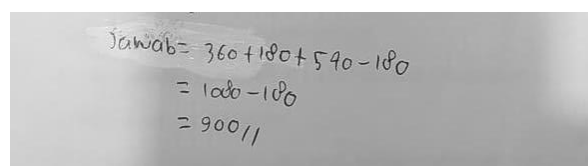 Jawab = 360 + 180 + 540 - 180
= 1080 - 180
= 900 //